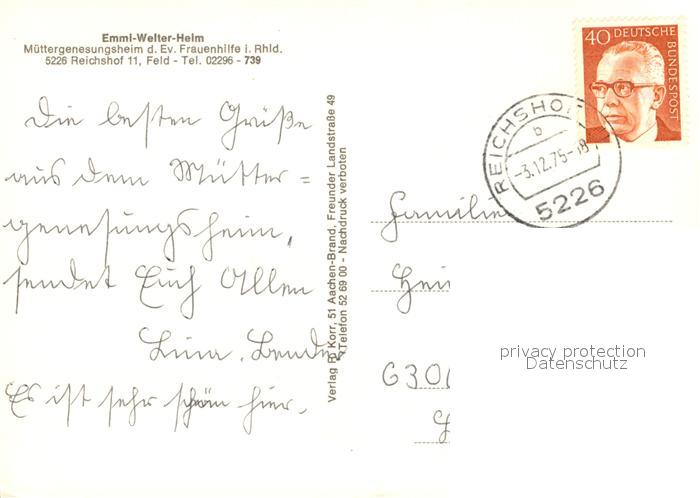 Emmi-Welter-Heim
Müttergenesungsheim d. Ev. Frauenhilfe i. Rhld.
5226 Reichshof 11, Feld - Tel. 02296 - 739
Die besten Grüße
aus dem Mütter=
genesungsheim,
sendet Euch Allen
Lina.
Es ist sehr schön hier.
Verlag R. Korr, 51 Aachen-Brand, Freunder Landstraße 49
Telefon 52 69 00 - Nachdruck verboten
40 DEUTSCHE
BUNDESPOST
REICHSHOF
b
-3.12.75-18
5226
Familie
Hei
630
privacy protection
Datenschutz